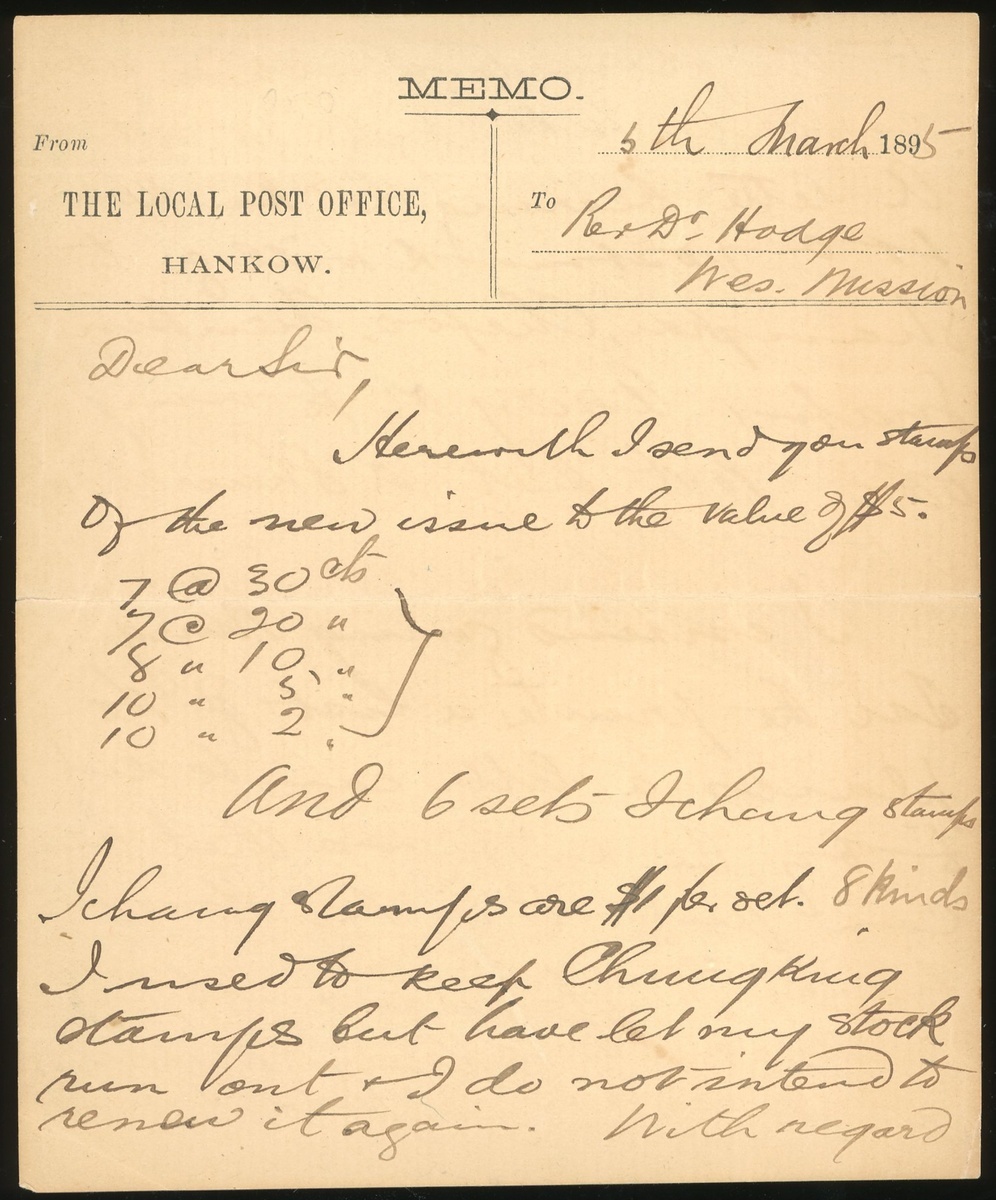 MEMO.
From
5th March 1895
THE LOCAL POST OFFICE,
HANKOW.
To
Rev Dr. Hodge
Wes. Mission
Dear Sir,
Herewith I send you stamps
Of the new issue to the value of $5.
7 @ 30 cts
7 @ 20 "
8 " 10 "
10 " 5 "
10 " 2 "
And 6 sets Ichang stamps
Ichang stamps are $1 per set. 8 kinds
I used to keep Chungking
stamps but have let my stock
run out & I do not intend to
renew it again. With regard